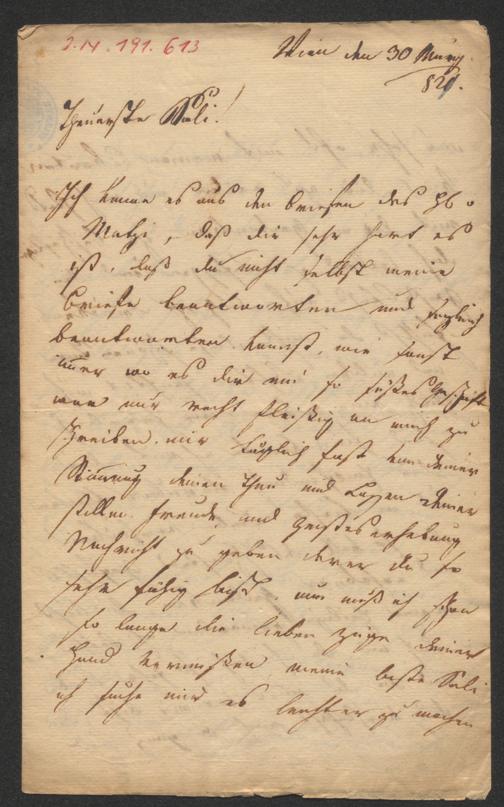 2.N.191.613
Wien den 30 März
821.
Theuerste Sali!
Ich kenne es aus den Briefen des
Matzi, daß dir sehr hart es
ist, daß du nicht selbst meine
Briefe beantworten und
beantworten kannst, wie sonst
immer wo es dir ein so süßes Geschäft
war mir recht fleißig an mich zu
schreiben. mir täglich fast von deiner
Stimmung deinen Thun und Lassen deiner
stillen Freude und Geisteserhebung
Nachricht zu geben derer du so
sehr fähig bist. nun muß ich schon
so lange die lieben Züge deiner
Hand vermissen meine beste Sali
ich suche mir es leichter zu machen